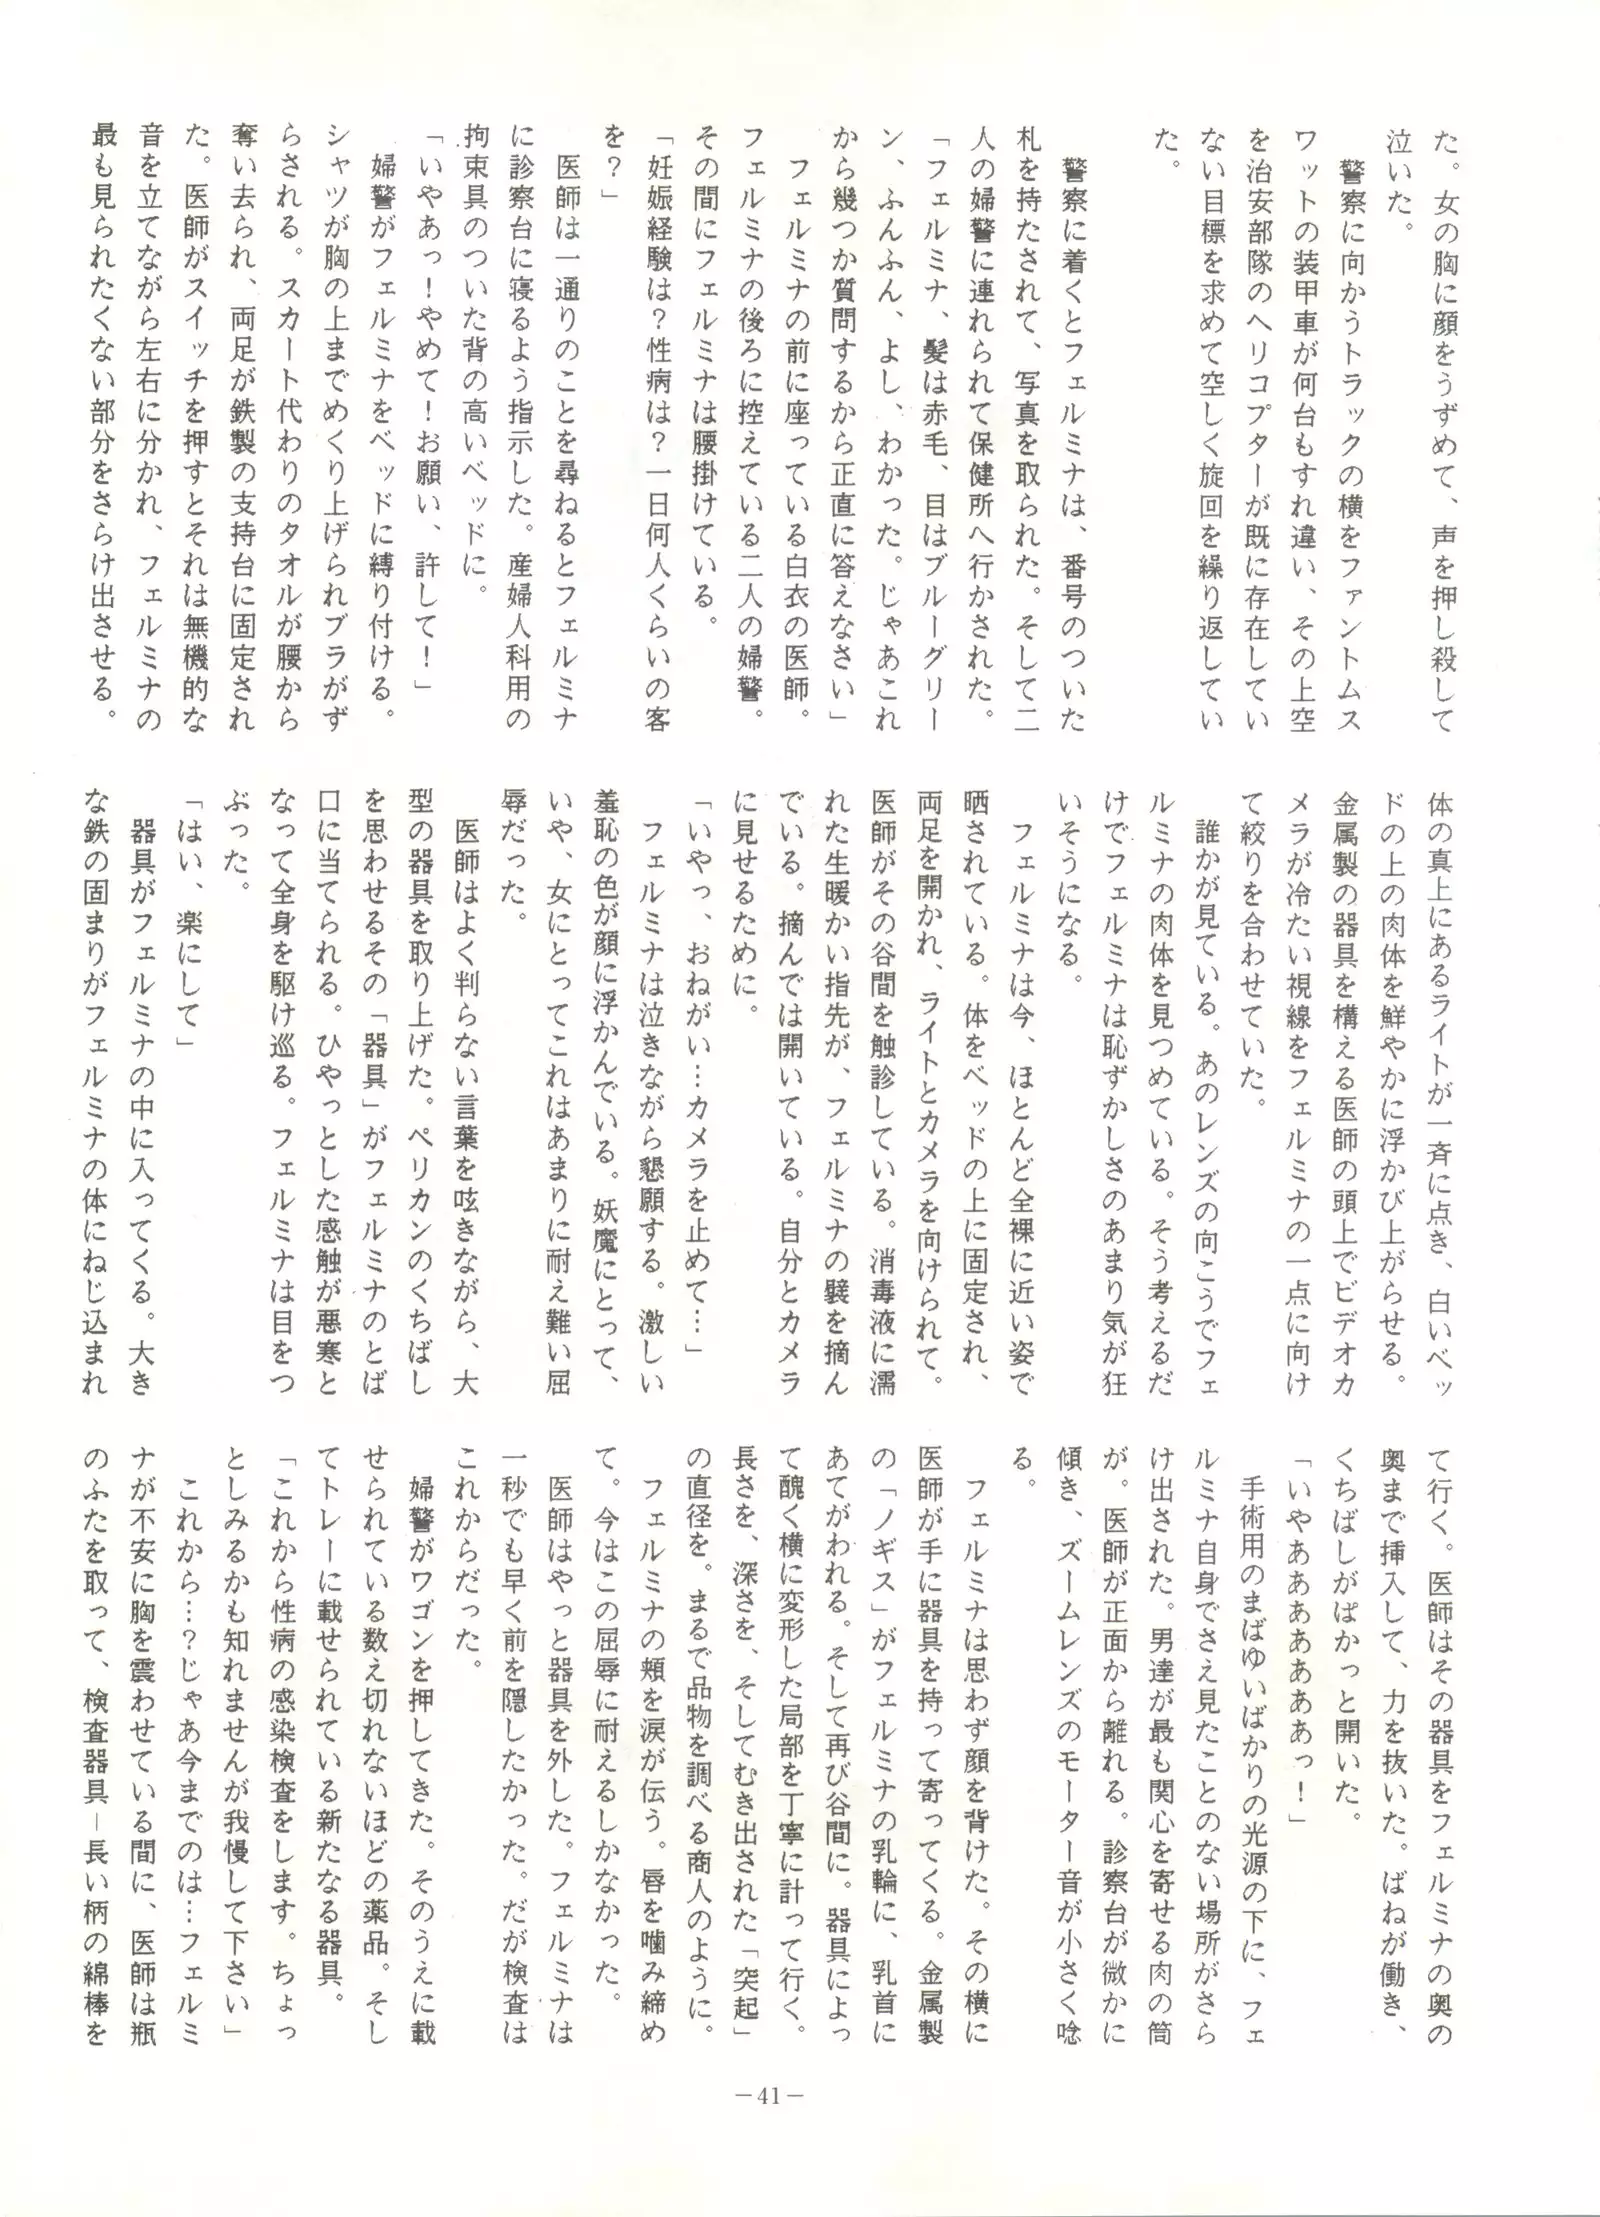 た。女の胸に顔をうずめて、声を押し殺して
泣いた。
警察に向かうトラックの横をファントムス
ワットの装甲車が何台もすれ違い、その上空
を治安部隊のヘリコプターが既に存在してい
ない目標を求めて空しく旋回を繰り返してい
た。
警察に着くとフェルミナは、番号のついた
札を持たされて、写真を取られた。そして二
人の婦警に連れられて保健所へ行かされた。
「フェルミナ、髪は赤毛、目はブルーグリー
ン、ふんふん、よし、わかった。じゃあこれ
から幾つか質問するから正直に答えなさい」
フェルミナの前に座っている白衣の医師。
フェルミナの後ろに控えている二人の婦警。
その間にフェルミナは腰掛けている。
「妊娠経験は？性病は？一日何人くらいの客
を？」
医師は一通りのことを尋ねるとフェルミナ
に診察台に寝るよう指示した。産婦人科用の
拘束具のついた背の高いベッドに。
「いやあっ！やめて！お願い、許して！」
婦警がフェルミナをベッドに縛り付ける。
シャツが胸の上までめくり上げられブラがず
らされる。スカート代わりのタオルが腰から
奪い去られ、両足が鉄製の支持台に固定され
た。医師がスイッチを押すとそれは無機的な
音を立てながら左右に分かれ、フェルミナの
最も見られたくない部分をさらけ出させる。
体の真上にあるライトが一斉に点き、白いベッ
ドの上の肉体を鮮やかに浮かび上がらせる。
金属製の器具を構える医師の頭上でビデオカ
メラが冷たい視線をフェルミナの一点に向け
て絞りを合わせていた。
誰かが見ている。あのレンズの向こうでフェ
ルミナの肉体を見つめている。そう考えるだ
けでフェルミナは恥ずかしさのあまり気が狂
いそうになる。
フェルミナは今、ほとんど全裸に近い姿で
晒されている。体をベッドの上に固定され、
両足を開かれ、ライトとカメラを向けられて。
医師がその谷間を触診している。消毒液に濡
れた生暖かい指先が、フェルミナの襞を摘ん
でいる。摘んでは開いている。自分とカメラ
に見せるために。
「いやっ、おねがい…カメラを止めて…」
フェルミナは泣きながら懇願する。激しい
羞恥の色が顔に浮かんでいる。妖魔にとって、
いや、女にとってこれはあまりに耐え難い屈
辱だった。
医師はよく判らない言葉を呟きながら、大
型の器具を取り上げた。ペリカンのくちばし
を思わせるその「器具」がフェルミナのとば
口に当てられる。ひやっとした感触が悪寒と
なって全身を駆け巡る。フェルミナは目をつ
ぶった。
「はい、楽にして」
器具がフェルミナの中に入ってくる。大き
な鉄の固まりがフェルミナの体にねじ込まれ
て行く。医師はその器具をフェルミナの奥の
奥まで挿入して、力を抜いた。ばねが働き、
くちばしがぱかっと開いた。
「いやああああああああっ！」
手術用のまばゆいばかりの光源の下に、フェ
ルミナ自身でさえ見たことのない場所がさら
け出された。男達が最も関心を寄せる肉の筒
が。医師が正面から離れる。診察台が微かに
傾き、ズームレンズのモーター音が小さく唸
る。
フェルミナは思わず顔を背けた。その横に
医師が手に器具を持って寄ってくる。金属製
の「ノギス」がフェルミナの乳輪に、乳首に
あてがわれる。そして再び谷間に。器具によっ
て醜く横に変形した局部を丁寧に計って行く。
長さを、深さを、そしてむき出された「突起」
の直径を。まるで品物を調べる商人のように。
フェルミナの頬を涙が伝う。唇を噛み締め
て。今はこの屈辱に耐えるしかなかった。
医師はやっと器具を外した。フェルミナは
一秒でも早く前を隠したかった。だが検査は
これからだった。
婦警がワゴンを押してきた。そのうえに載
せられている数え切れないほどの薬品。そし
てトレーに載せられている新たなる器具。
「これから性病の感染検査をします。ちょっ
としみるかも知れませんが我慢して下さい」
これから…？じゃあ今までのは…フェルミ
ナが不安に胸を震わせている間に、医師は瓶
のふたを取って、検査器具－長い柄の綿棒を
－41－